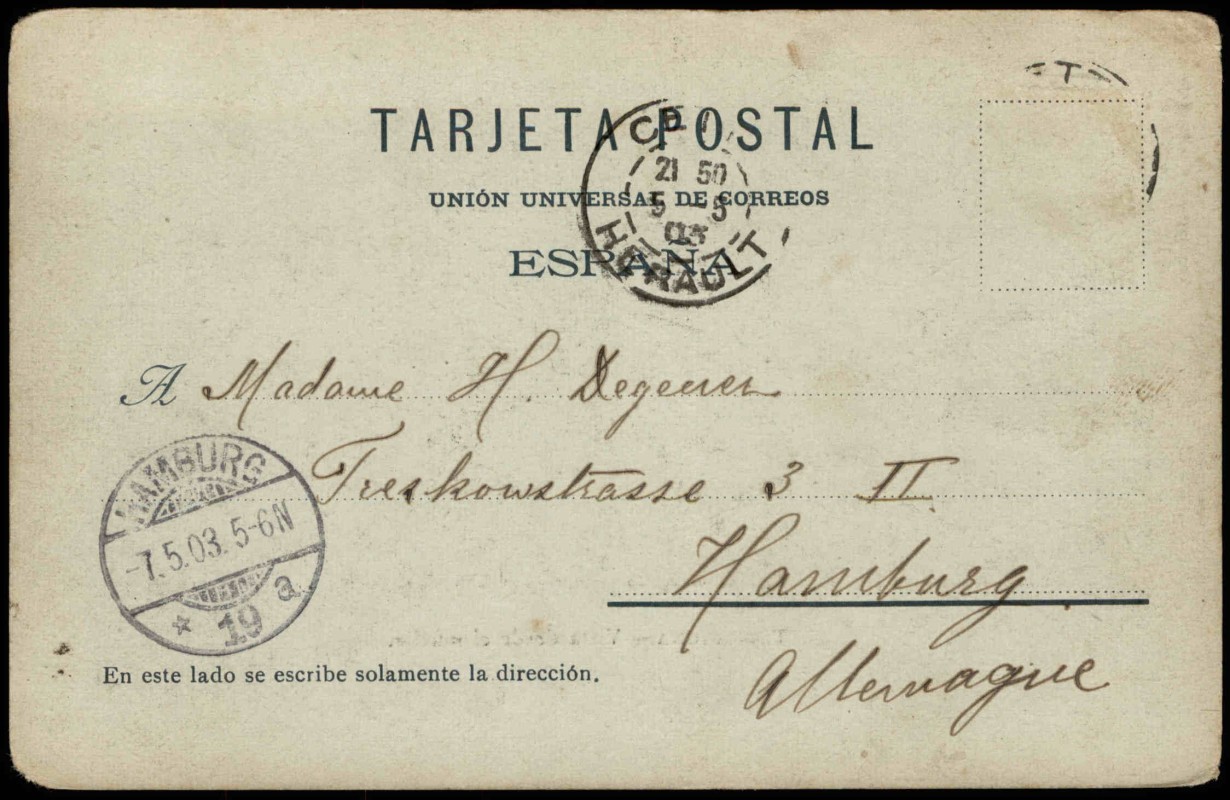 TARJETA POSTAL
UNIÓN UNIVERSAL DE CORREOS
ESPAÑA
21 50
5 -5
03
HÉRAULT
ET
A Madame H. Degener
Treskowstrasse 3 II
Hamburg
Allemagne
HAMBURG
-7.5.03. 5-6N
* 19 a
En este lado se escribe solamente la dirección.